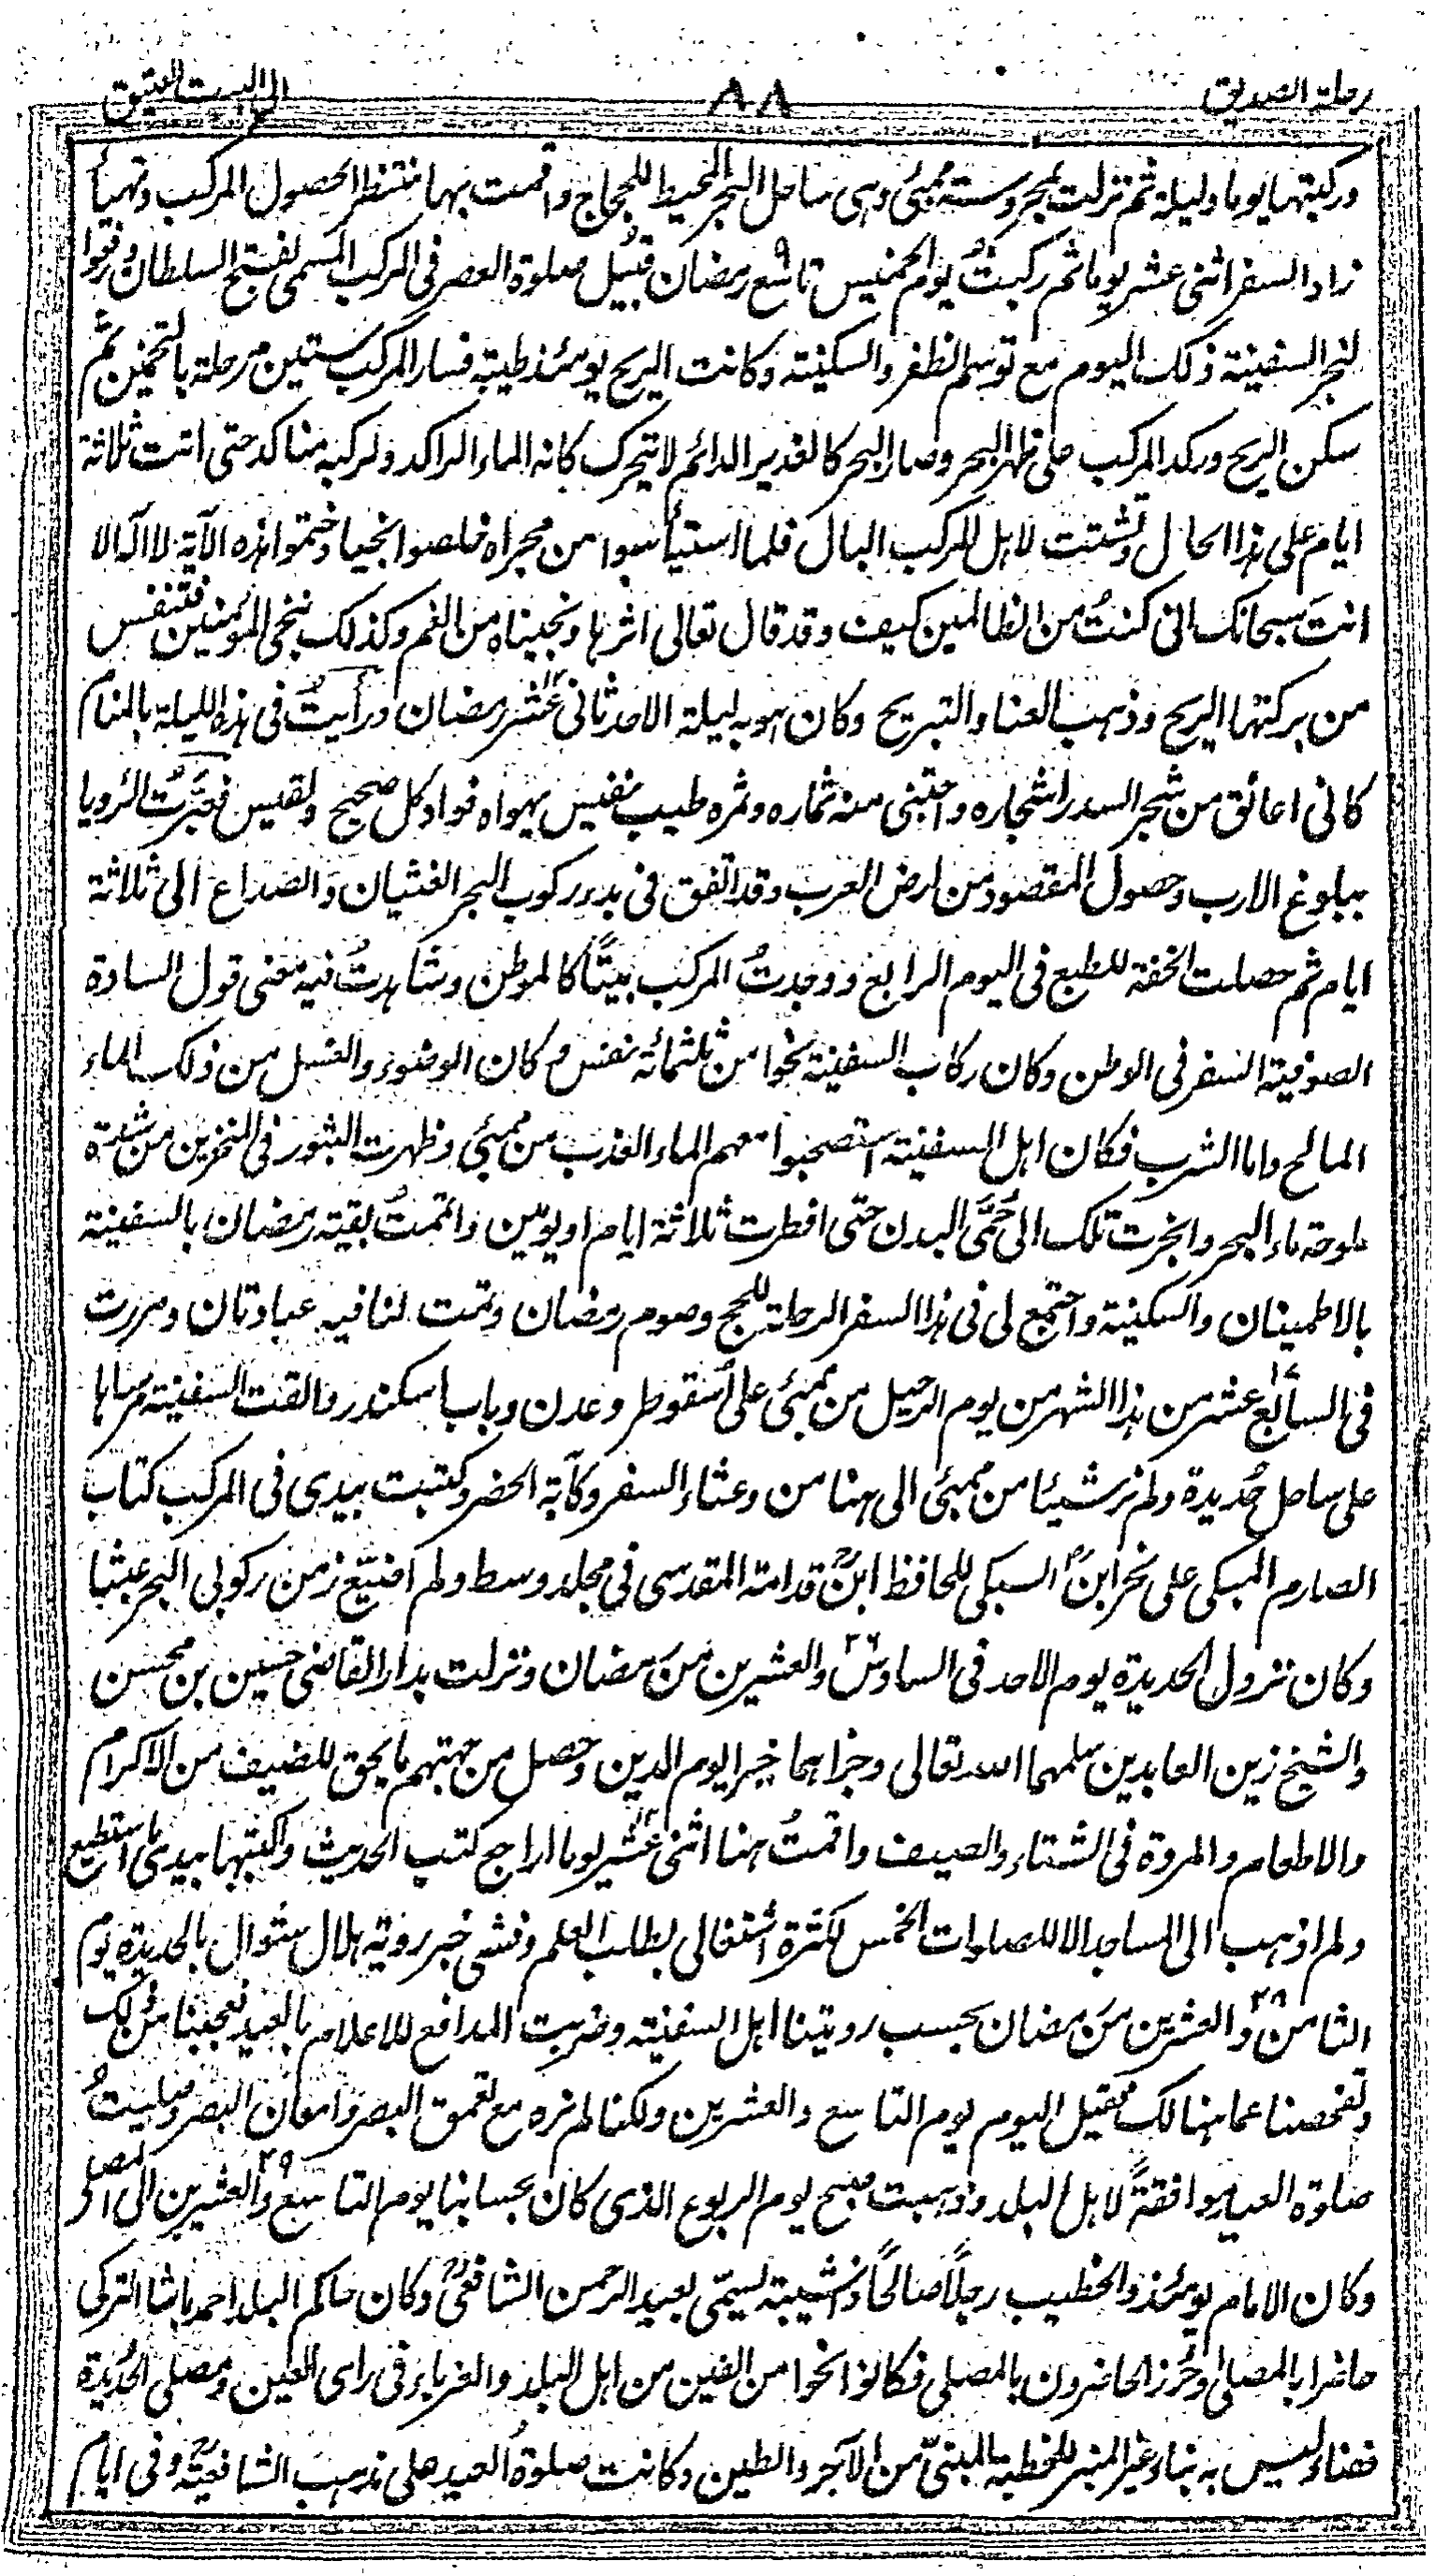 رحلة الصديق ٨٨ الى البيت العتيق
وركبتها يوما وليلة ثم نزلت بمحروسة ممبئ وهى ساحل البحر المحيط للحجاج واقمت بها منتظرا لحصول المركب وتهيأ
زاد السفر اثنى عشر يوما ثم ركبتُ يوم الخميس تاسع ٩ رمضان قبيل صلوة العصر فى المركب المسمى لفتح السلطان ورفعوا
لنجر السفينة ذلك اليوم مع توسم الظفر والسكينة وكانت الريح يومئذ طيبة فسار المركب ستين مرحلة بالتخمين ثم
سكن الريح وركد المركب على ظهر البحر وصار البحر كالغدير الدائم لا يتحرك كانه الماء الراكد ولركبه مناكد حتى اتت ثلاثة
ايام على هذا الحال وتشتت لاهل المركب البال فلما استيأسوا من مجراه خلصوا نجيا وختموا هذه الآية لا اله الا
انتَ سبحانك انى كنتُ من الظالمين كيف وقد قال تعالى اثرها ونجيناه من الغم وكذلك ننجى المؤمنين فتنفس
من بركتها الريح وذهب العنا والتبريح وكان هبوبه ليلة الاحد ثانى عشر ١٢ رمضان ورأيتُ فى هذه الليلة بالمنام
كانى اعانق من شجر السدر اشجاره واجتنى منه ثماره وثمره طيب نفيس يهواه فواد كل صحيح ولقيس فعبَّرتُ الرويا
ببلوغ الارب وحصول المقصود من ارض العرب وقد اتفق فى بدء ركوب البحر الغثيان والصداع الى ثلاثة
ايام ثم حصلت الخفة للطبع فى اليوم الرابع ووجدتُ المركب بيتًا كالموطن وشاهدتُ فيه معنى قول السادة
الصوفية السفر فى الوطن وكان ركاب السفينة نحوا من ثلثمائة نفس وكان الوضوء والغسل من ذلك الماء
المالح واما الشرب فكان اهل السفينة استصحبوا معهم الماء العذب من ممبئ وظهرت البثور فى النخرين من شدة
ملوحة ماء البحر وانجرت تلك الى حُمَّى البدن حتى افطرت ثلاثة ايام او يومين واتممتُ بقية رمضان بالسفينة
بالاطمينان والسكينة واجتمع لى فى هذا السفر الرحلة للحج وصوم رمضان وتمت لنا فيه عبادتان ومررت
فى السابع عشر من هذا الشهر من يوم الرحيل من ممبئ على سقوطر وعدن وباب اسكندر والقت السفينة مرساها
على ساحل حُديدة ولم نر شيئا من ممبئ الى هنا من وعثاء السفر وكآبة الحضر وكتبت بيدى فى المركب كتاب
الصارم المبكى على نحر ابن السبكى للحافظ ابن قدامة المقدسى فى مجلد وسط ولم اضيّع زمن ركوبى البحر عبثا
وكان نزول الحديدة يوم الاحد فى السادس ٢٦ والعشرين من رمضان ونزلت بدار القاضى حسين بن محسن
والشيخ زين العابدين سلمهما الله تعالى وجزاهما خيرا يوم الدين وحصل من جهتهم ما يحق للضيف من الاكرام
والاطعام والمروة فى الشتاء والصيف واقمتُ هنا اثنى عشر ١٢ يوما اراجع كتب الحديث واكتبها بيدى ما استطيع
ولم اذهب الى المساجد الا للصلوات الخمس لكثرة اشتغالى بطلب العلم وفشى خبر روية هلال شوال بالحديدة يوم
الثامن ٢٨ والعشرين من رمضان بحسب رويتنا اهل السفينة وضربت المدافع للاعلام بالعيد فعجبنا من ذلك
وتفحصنا عما هنالك فقيل اليوم يوم التاسع والعشرين ولكنا لم نره مع تعمق البصر وامعان البصر وصليتُ
صلوة العيد موافقةً لاهل البلد وذهبت صبح يوم الربوع الذى كان بحسابنا يوم التاسع ٢٩ والعشرين الى المصلى
وكان الامام يومئذ والخطيب رجلًا صالحًا ذا شيبة يسمّى بعبد الرحمن الشافعى وكان حاكم البلد احمد باشا التركى
حاضرا بالمصلى وحُزر الحاضرون بالمصلى فكانوا نحوا من الفين من اهل البلد والغرباء فى راى العين ومصلى الحُديدة
فضاء ليس به بناء غير المنبر للخطبة المبنىّ من الآجر والطين وكانت صلوةُ العيد على مذهب الشافعية وفى ايام